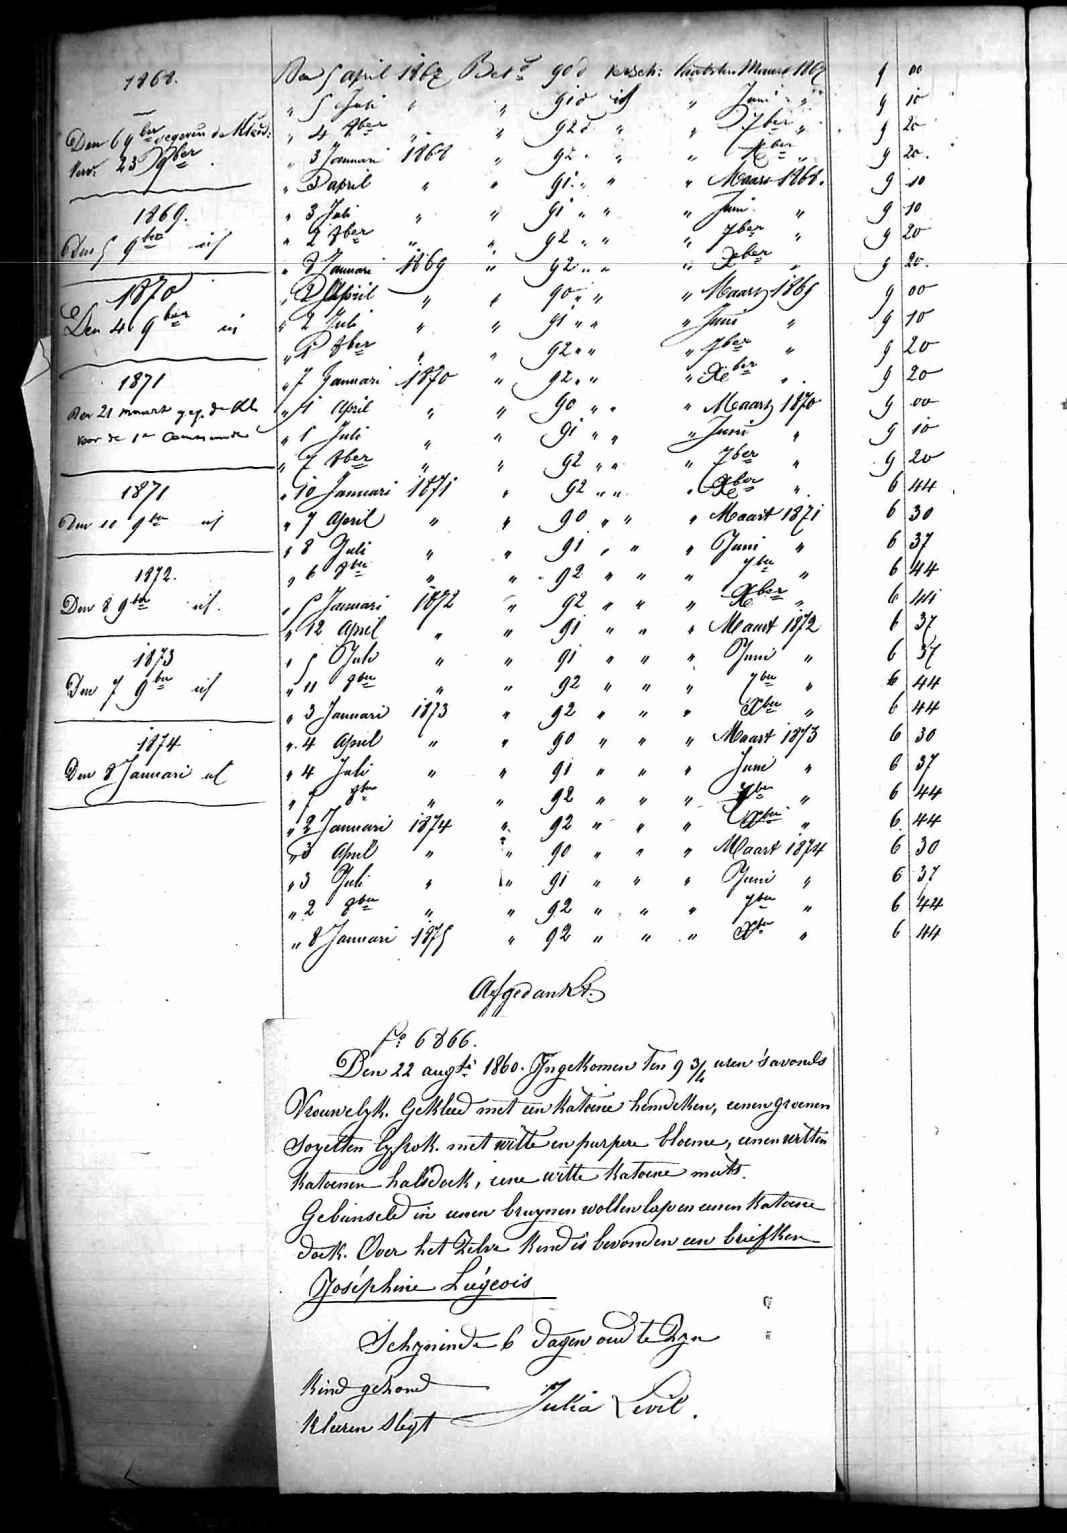 1868.
Den 6 9ber gegeven de kleed:
Verv: 23 9ber
1869.
Den 5 9ber id
1870
Den 4 9ber id
1871
Den 21 maart geg. de kl.
voor de 1e Communie
1871
Den 10 9ber id
1872.
Den 8 9ber id.
1873
Den 7 9ber id
1874
Den 8 Januari id
Den 5 april 1867 Bet. 90 d versch: Maart 1867 9 00
" 5 Juli " " 91 d id " Juni " 9 10
" 4 8ber " " 92 d " " 7ber " 9 20
" 3 Januari 1868 " 92 " " " Xber " 9 20.
" 3 april " " 91 " " " Maart 1868. 9 10
" 3 Juli " " 91 " " " Juni " 9 10
" 2 8ber " " 92 " " " 7ber " 9 20
" 8 Januari 1869 " 92 " " " Xber " 9 20.
" 2 April " " 90 " " " Maart 1869 9 00
" 2 Juli " " 91 " " " Juni " 9 10
" 1 8ber " " 92 " " " 7ber " 9 20
" 7 Januari 1870 " 92 " " " Xber " 9 20
" 1 April " " 90 " " " Maart 1870 9 00
" 1 Juli " " 91 " " " Juni " 9 10
" 7 8ber " " 92 " " " 7ber " 9 20
" 10 Januari 1871 " 92 " " " Xber " 6 44
" 7 April " " 90 " " " Maart 1871 6 30
" 8 Juli " " 91 " " " Juni " 6 37
" 6 8ber " " 92 " " " 7ber " 6 44
" 5 Januari 1872 " 92 " " " Xber " 6 44
" 12 April " " 91 " " " Maart 1872 6 37
" 5 Juli " " 91 " " " Juni " 6 37
" 11 8ber " " 92 " " " 7ber " 6 44
" 3 Januari 1873 " 92 " " " Xber " 6 44
" 4 April " " 90 " " " Maart 1873 6 30
" 4 Juli " " 91 " " " Juni " 6 37
" 8ber " " 92 " " " 7ber " 6 44
" 2 Januari 1874 " 92 " " " Xber " 6 44
" 3 April " " 90 " " " Maart 1874 6 30
" 3 Juli " " 91 " " " Juni " 6 37
" 2 8ber " " 92 " " " 7ber " 6 44
" 8 Januari 1875 " 92 " " " Xber " 6 44
Afgedankt.
6866.
Den 22 augti 1860. Ingekomen ten 9 3/4 uren 's avonds
Vrouwelyk. Gekleed met een katoene hemdeken, eenen groenen
Soyetten lyfrok. met witte en purpere bloeme, eenen witten
katoenen halsdoek, eene witte katoene muts.
Gebunseld in eenen bruynen wollen lap en eenen katoene
doek. Over het zelve kind is bevonden een briefken
Joséphine Liégeois
Schynende 6 dagen oud te zyn
Kind gezond
Kleeren slegt Julia Levil.